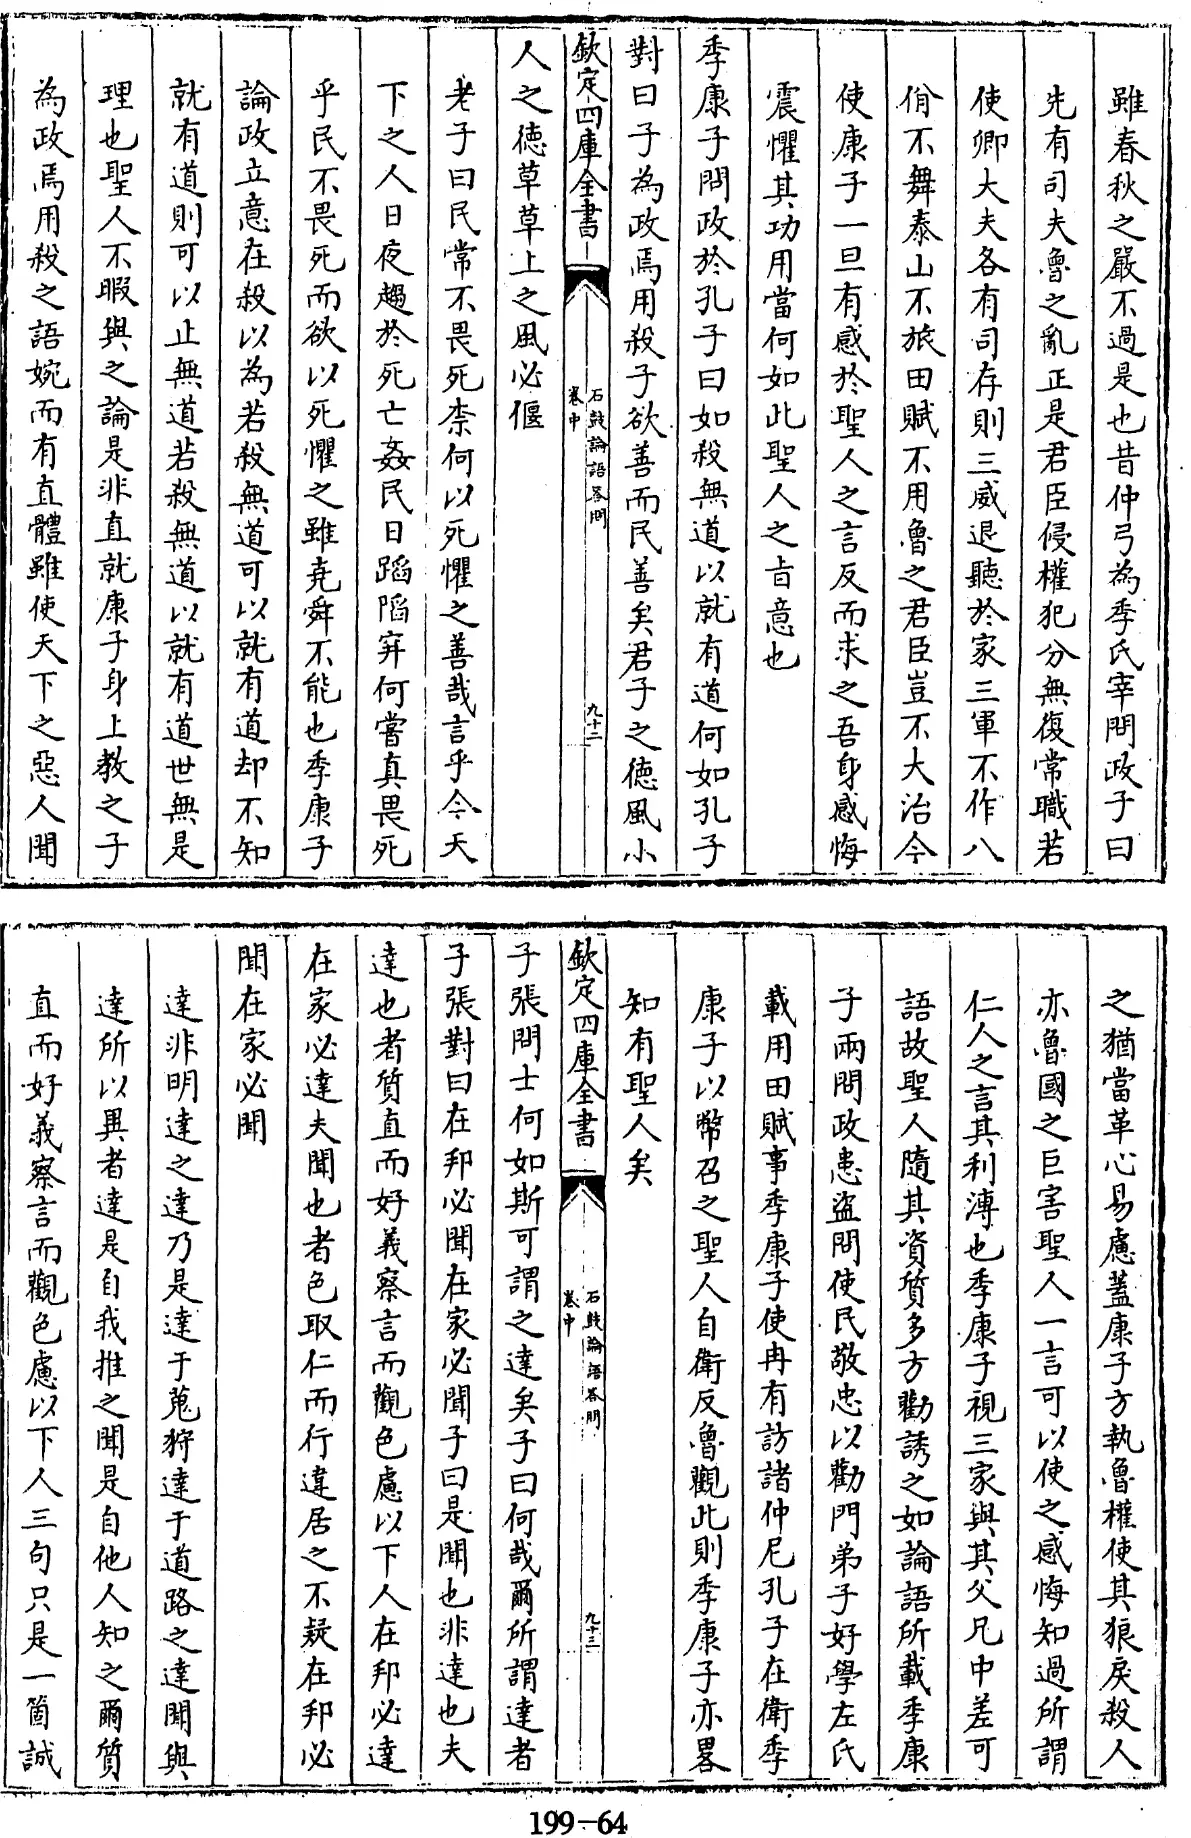 雖春秋之嚴不過是也昔仲弓為季氏宰問政子曰
先有司夫魯之亂正是君臣侵權犯分無復常職若
使卿大夫各有司存則三威退聽於家三軍不作八
佾不舞泰山不旅田賦不用魯之君臣豈不大治今
使康子一旦有感於聖人之言反而求之吾身感悔
震懼其功用當何如此聖人之㫖意也
季康子問政於孔子曰如殺無道以就有道何如孔子
對曰子為政焉用殺子欲善而民善矣君子之德風小
欽定四庫全書
石鼓論語答問
卷中
九十二
人之德草草上之風必偃
老子曰民常不畏死柰何以死懼之善哉言乎今天
下之人日夜趨於死亡姦民日蹈陷穽何嘗真畏死
乎民不畏死而欲以死懼之雖堯舜不能也季康子
論政立意在殺以為若殺無道可以就有道却不知
就有道則可以止無道若殺無道以就有道世無是
理也聖人不暇與之論是非直就康子身上教之子
為政焉用殺之語婉而有直體雖使天下之惡人聞
之猶當革心易慮蓋康子方執魯權使其狼戾殺人
亦魯國之巨害聖人一言可以使之感悔知過所謂
仁人之言其利溥也季康子視三家與其父兄中差可
語故聖人隨其資質多方勸誘之如論語所載季康
子兩問政患盜問使民敬忠以勸門弟子好學左氏
載用田賦事季康子使冉有訪諸仲尼孔子在衛季
康子以幣召之聖人自衛反魯觀此則季康子亦畧
知有聖人矣
欽定四庫全書
石鼓論語答問
卷中
九十三
子張問士何如斯可謂之達矣子曰何哉爾所謂達者
子張對曰在邦必聞在家必聞子曰是聞也非達也夫
達也者質直而好義察言而觀色慮以下人在邦必達
在家必達夫聞也者色取仁而行違居之不疑在邦必
聞在家必聞
達非明達之達乃是達于蒐狩達于道路之達聞與
達所以異者達是自我推之聞是自他人知之爾質
直而好義察言而觀色慮以下人三句只是一箇誠
199-64